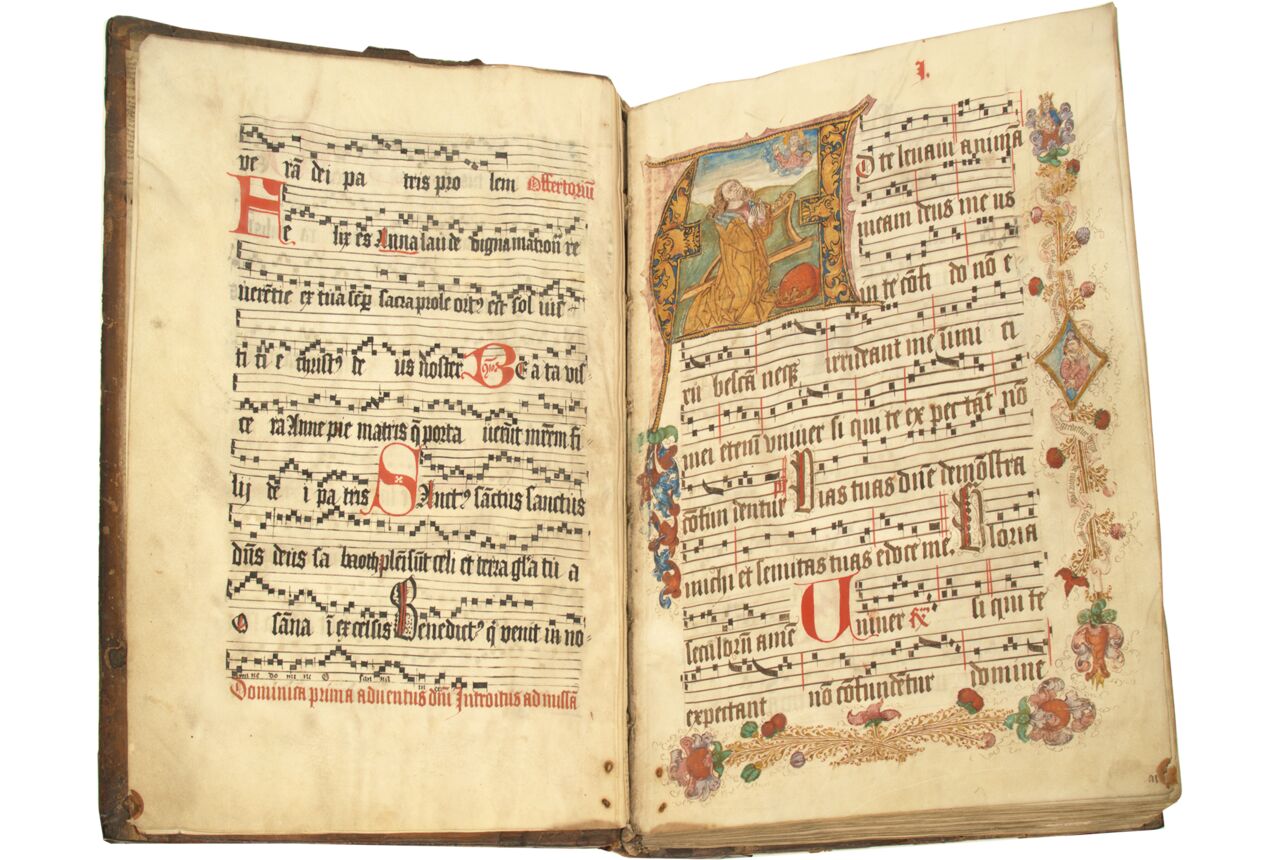 ve rā dei pa tris pro lem Offertoriū
Fe lix es Anna lau de digna matron re
uerētie ex tua sēp sacra prole ortꝰ est sol ius
ti ti e christꝰ de us noster Be a ta vis
ce ra Anne pie matris q̄ porta uerūt mr̄em fi
lij de i pa tris Sanctꝰ sāctus sanctus
dn̄s deus sa baoth plēi sūt celi et terra gl̄a tu a
O sāna ī excelsis Benedictꝰ q̄ venit in no
mi ne do mi ne O san na
Dominica prima aduentus dn̄i Introitus ad missā
I.
AD te leuaui animā
meam deus me us
in te cōfi do nō e
irrideant me inimi ci
mei etenī vniuer si qui te ex pectāt nō
cōfun dentur Vias tuas dn̄e demōstra
michi et semitas tuas edoce me. Gloria
seculorū amē Uniuer si qui te
expectant nō cōfundētur domine